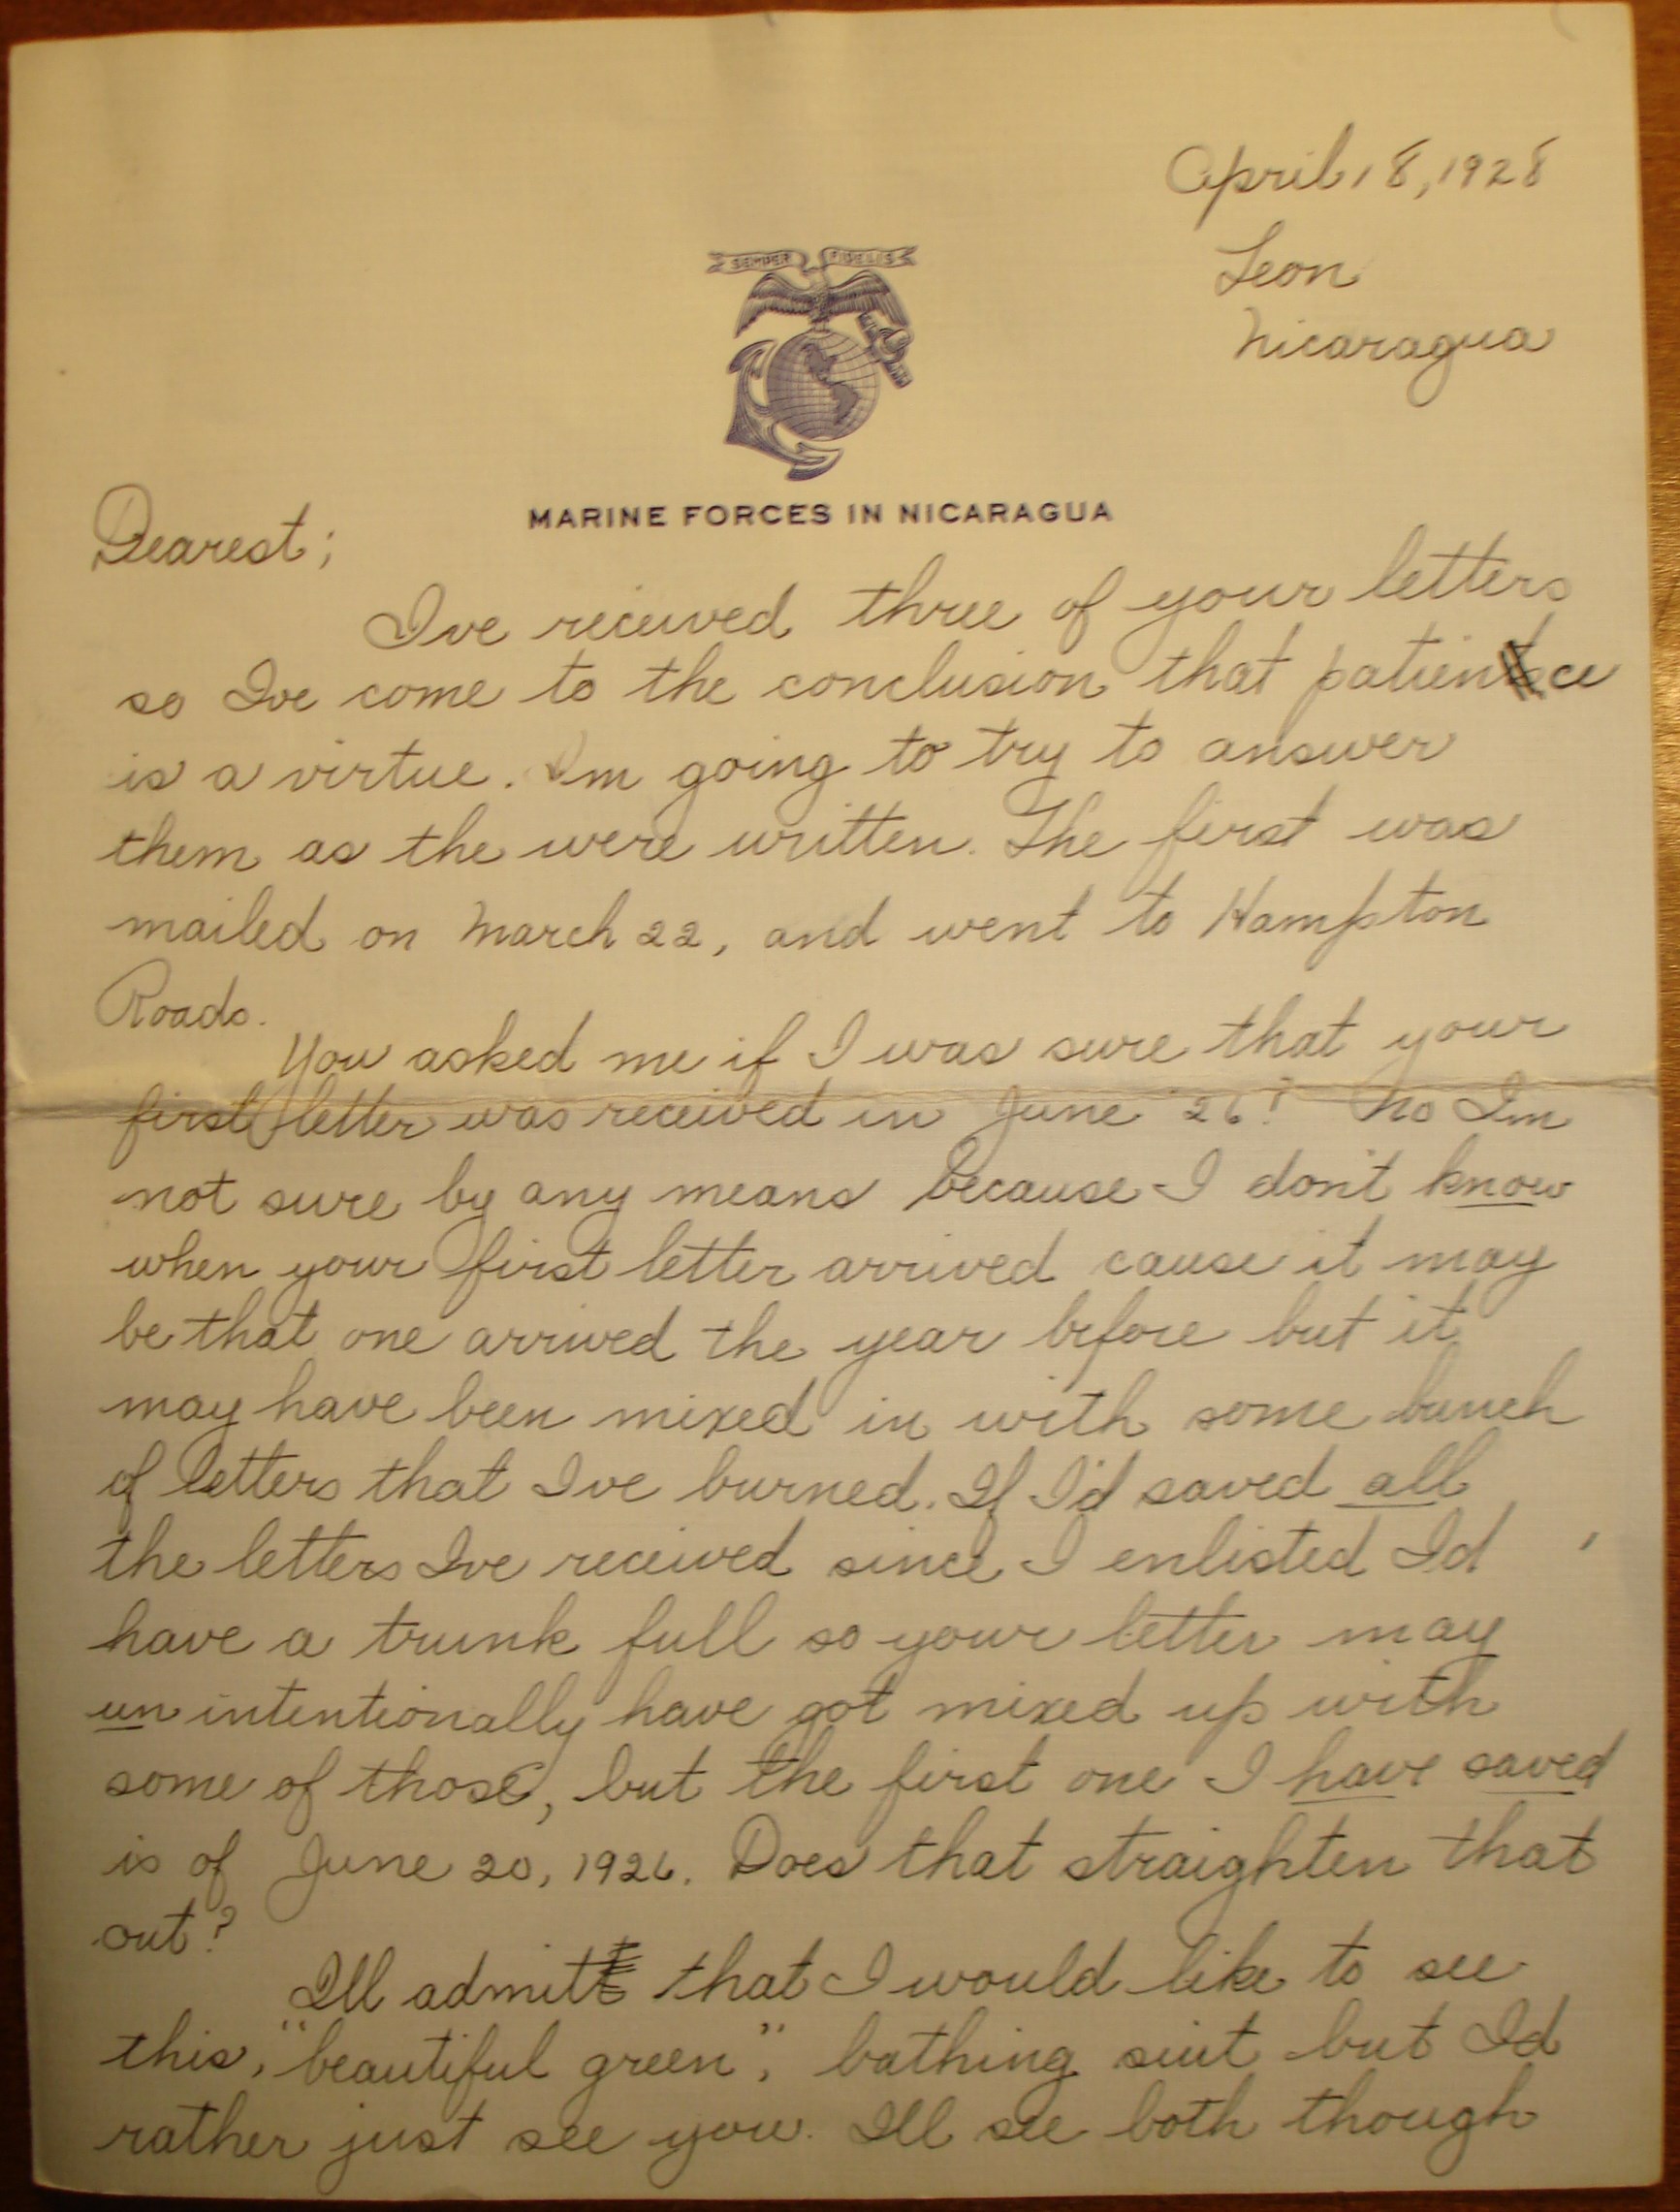 April 18, 1928
Leon
Nicaragua
SEMPER FIDELIS
MARINE FORCES IN NICARAGUA
Dearest;
Ive received three of your letters
so Ive come to the conclusion that patience
is a virtue. Im going to try to answer
them as the were written. The first was
mailed on March 22, and went to Hampton
Roads.
You asked me if I was sure that your
first letter was received in June '26? No Im
not sure by any means because I don't know
when your first letter arrived cause it may
be that one arrived the year before but it
may have been mixed in with some bunch
of letters that Ive burned. If I'd saved all
the letters Ive received since I enlisted Id
have a trunk full so your letter may
unintentionally have got mixed up with
some of those, but the first one I have saved
is of June 20, 1926. Does that straighten that
out?
Ill admit that I would like to see
this, "beautiful green", bathing suit but Id
rather just see you. Ill see both though